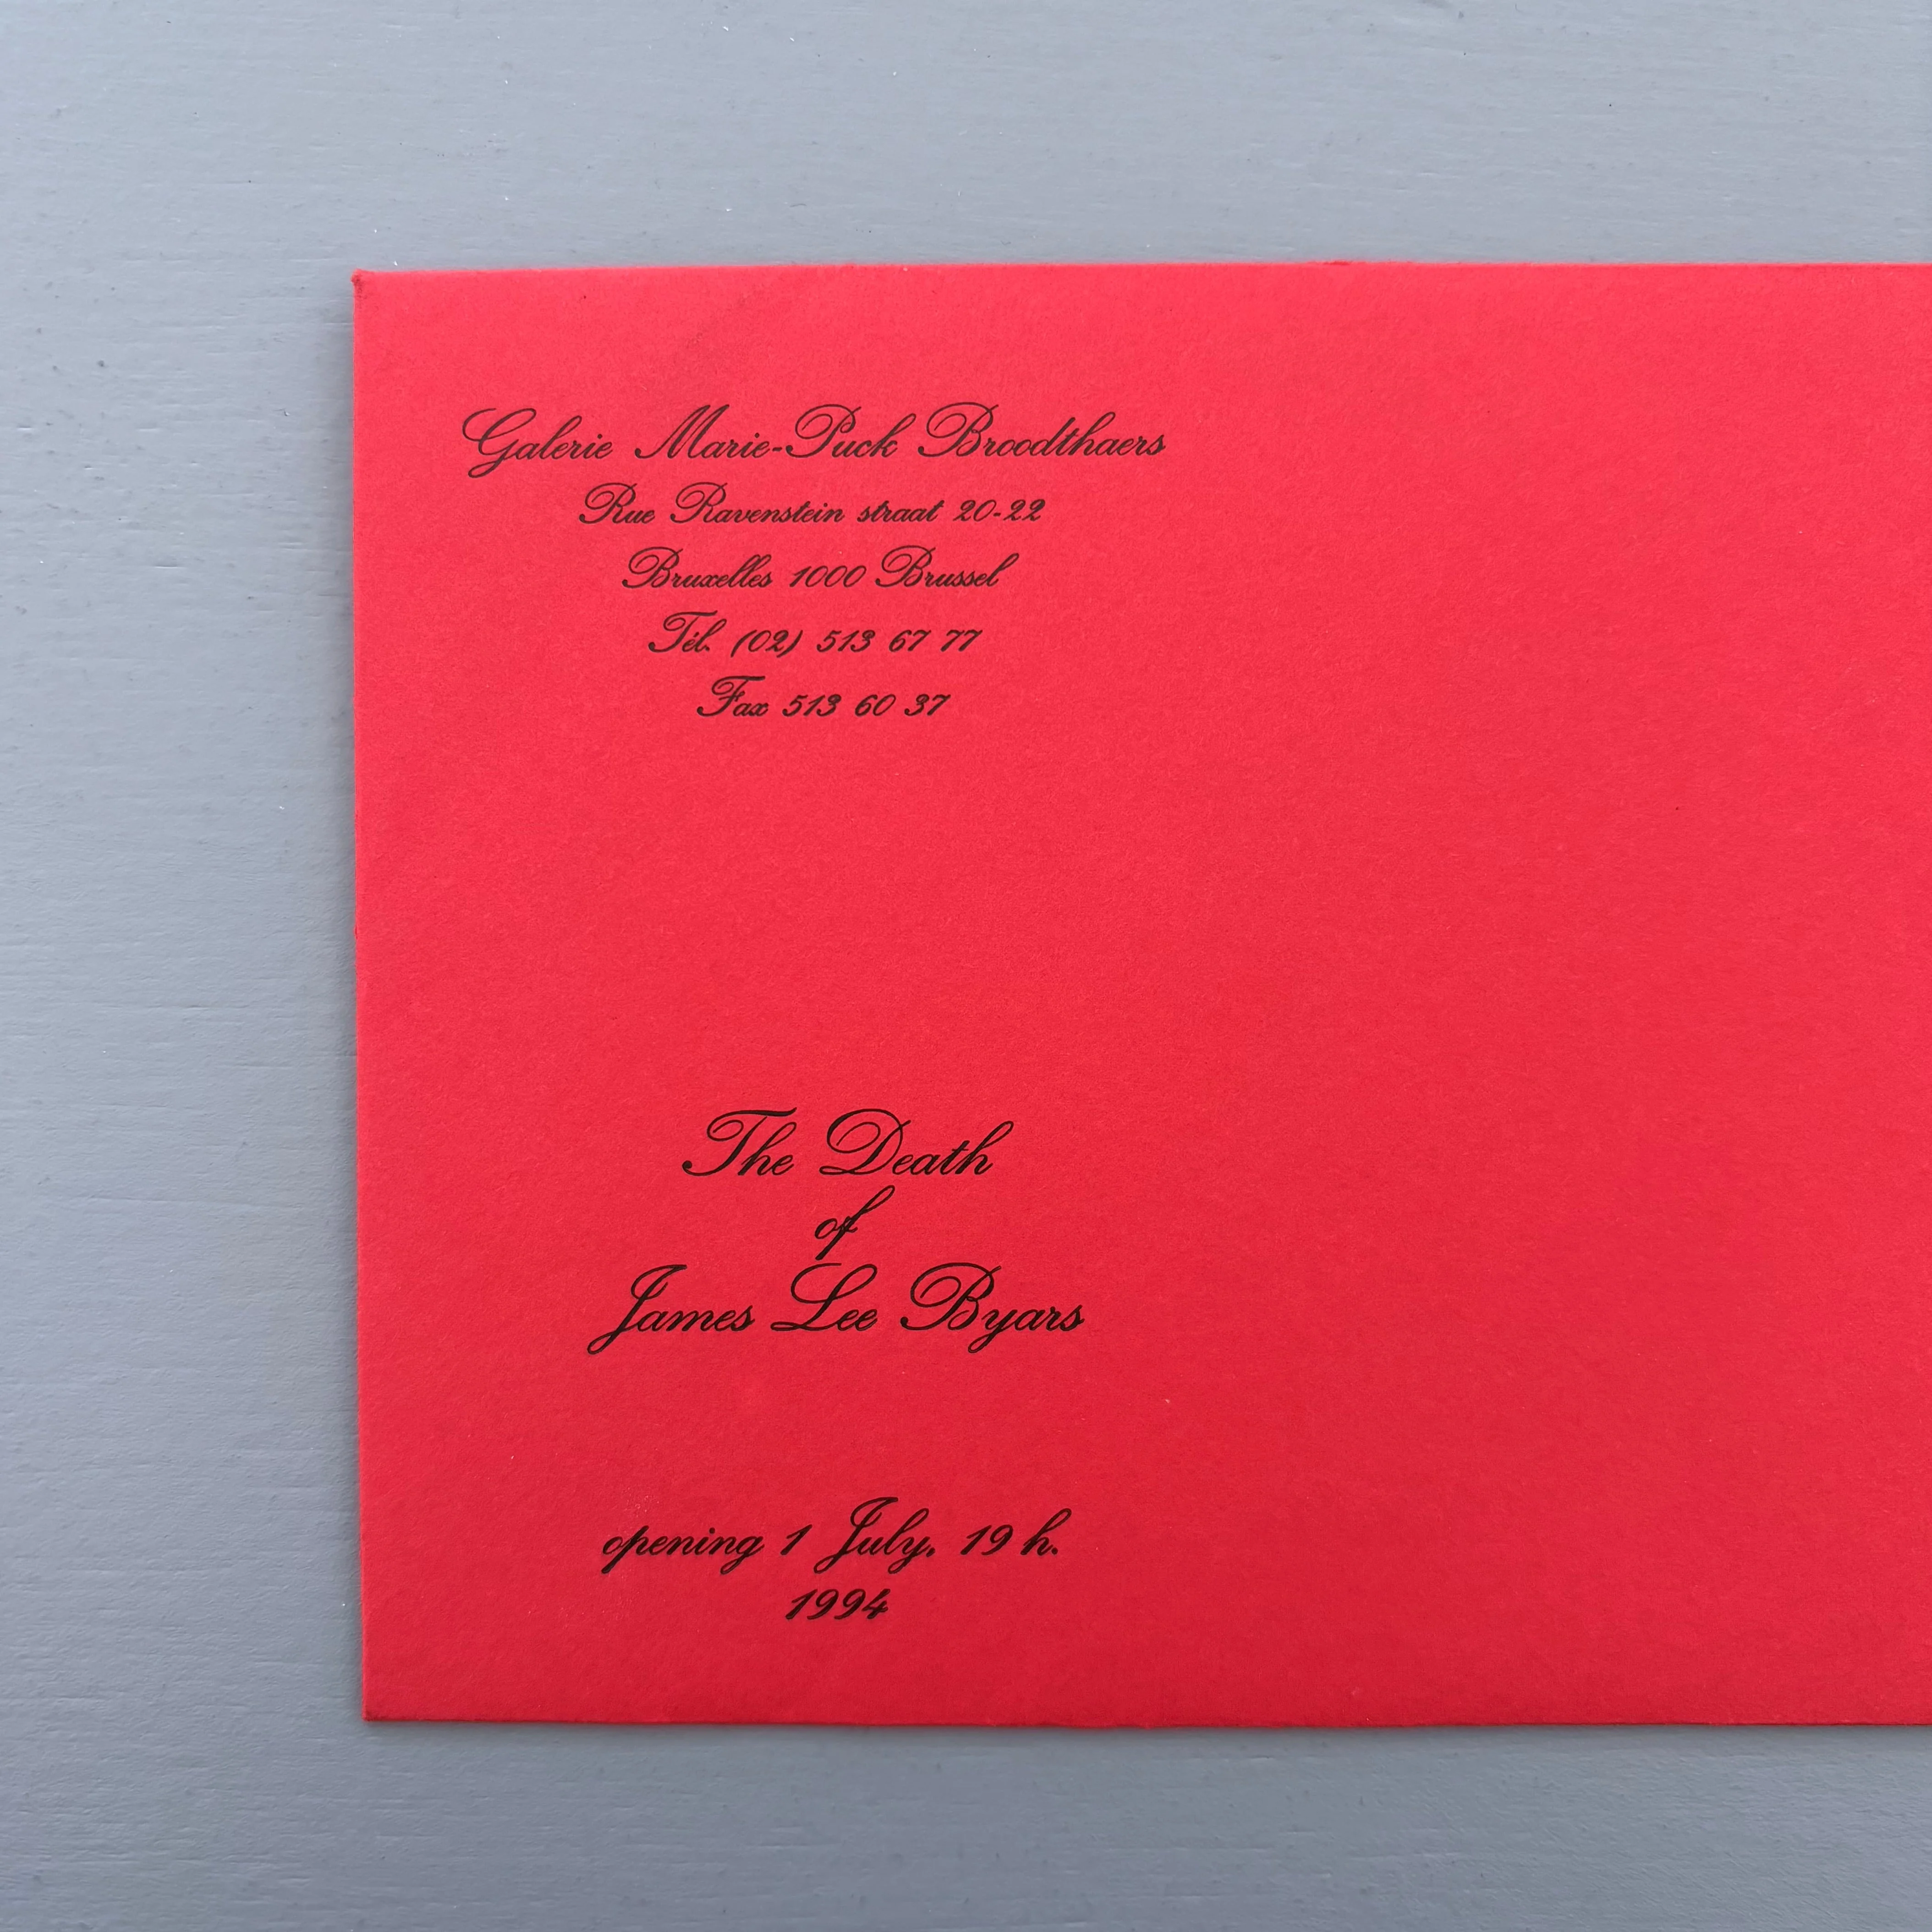 Galerie Marie-Puck Broodthaers
Rue Ravenstein straat 20-22
Bruxelles 1000 Brussel
Tél. (02) 513 67 77
Fax 513 60 37
The Death
of
James Lee Byars
opening 1 July, 19 h.
1994